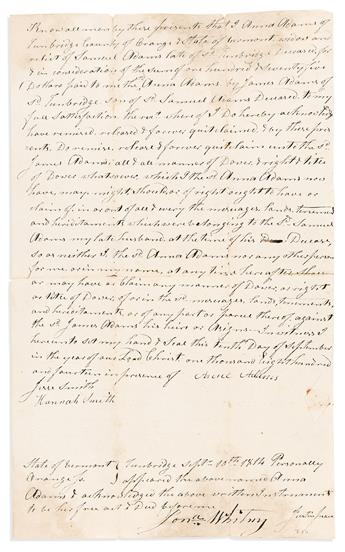 Know all men by these presents that I Anna Adams of
Tunbridge County of Orange & State of Vermont widow and
relict of Samuel Adams late of sd Tunbridge Deceased, for
& in consideration of the Sum of one hundred & Seventy five
Dollars paid to me the Anna Adams by James Adams of
sd Tunbridge son of sd Samuel Adams Deceased to my
full Satisfaction the rect where of I Do hereby acknowledge
have remised, released & forever quit claimed, & by these pres
ents Do remise, release & forever quit claim unto the sd
James Adams all & all manner of Dower & right & title
of Dower whatsoever which I the sd Anna Adams now
have, may might Should or of right ought to have or
claim of in or out of all & every the messuages, lands, tenements
and hereditaments which were belonging to the sd Samuel
Adams my late husband, at the time of his Decease,
so as neither I the sd Anna Adams nor any other person
for me, or in my name, at any time here after
or may have or Claim any manner of Dower, or right
or title of Dower of or in the sd messuages, lands, tenements,
and hereditaments, or of any part or parcel thereof, against
the sd James Adams his heirs or Asigns. In witness I
hereunto set my hand & Seal this tenth Day of September
in the year of our Lord Christ one thousand eight hundred
and fourteen in presence of
Jesse Smith
Hannah Smith
State of Vermont } Tunbridge Septr 10th 1814 Personally
Orange Ss. } appeared the above named Anna
Adams & acknowledged the above written Instrument
to be his free act & Deed before me
Jona Whitny